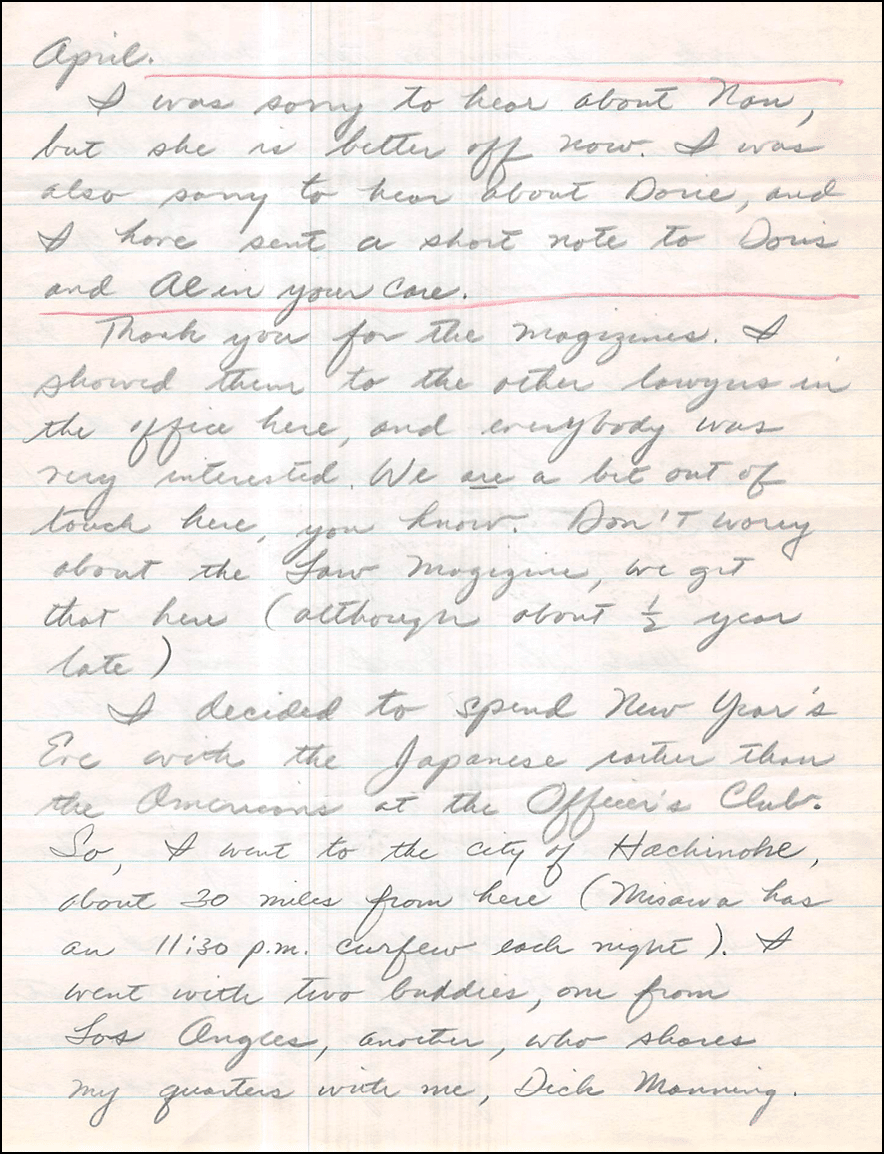 April.
I was sorry to hear about Nan,
but she is better off now. I was
also sorry to hear about Dorie, and
I have sent a short note to Doris
and Al in your care.
Thank you for the magizines. I
showed them to the other lawyers in
the office here, and everybody was
very interested. We are a bit out of
touch here, you know. Don't worry
about the Law Magizine, we get
that here (although about ½ year
late)
I decided to spend New Year's
Eve with the Japanese rather than
the Americans at the Officer's Club.
So, I went to the city of Hachinohe,
about 30 miles from here (Misawa has
an 11:30 p.m. curfew each night). I
went with two buddies, one from
Los Angles, another, who shares
my quarters with me, Dick Manning.